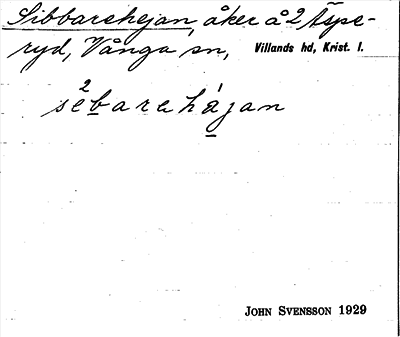 Sibbarehejan, åker å 2 Äspe-
ryd, Vånga sn, Villands hd, Krist. l.
se²barahájan
JOHN SVENSSON 1929